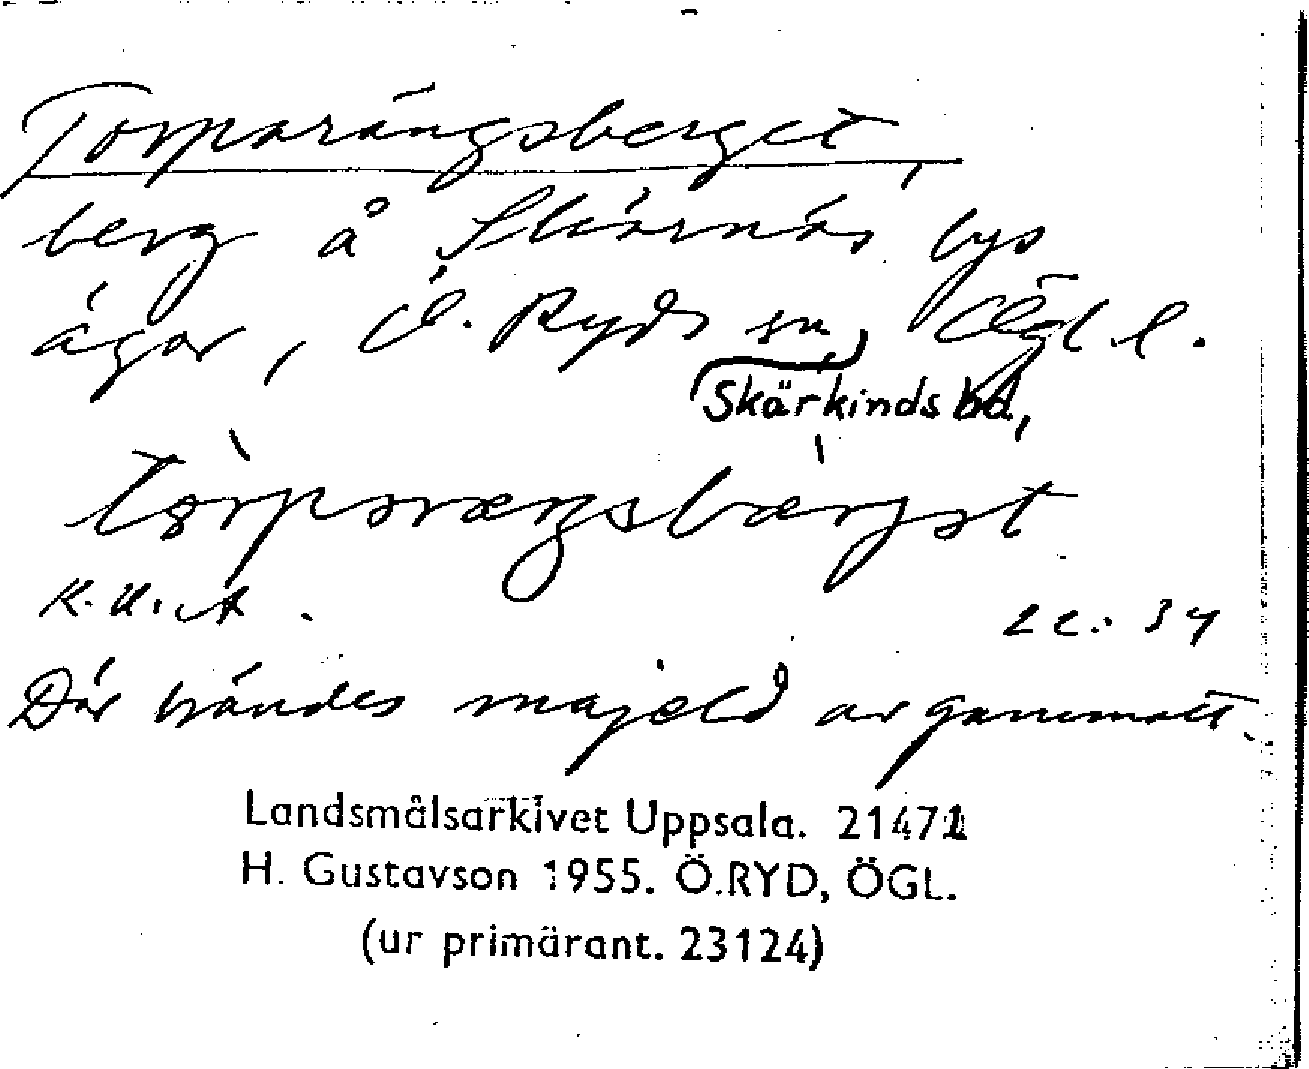 Torparängsberget,
berg å Skärnäs bys
ägor, Ö. Ryds sn, Ögl l.
Skärkinds hd,
K.U.A.
Där brändes majeld av gammalt.
Landsmålsarkivet Uppsala. 21471
H. Gustavson 1955. Ö.RYD, ÖGL.
(ur primärant. 23124)